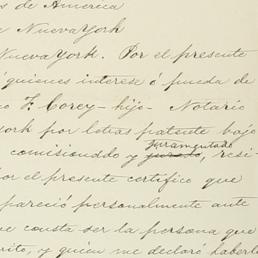 s de America
e Nueva York
Nueva York. Por el presente
á quienes interese ó pueda de
co F. Corey - hijo - Notario
York por letras patente bajo
comisionado y juramentado
jurado, resi-
or el presente certifico que
pareció personalmente ante
me consta ser la persona que
rito, y quien me declaró haberlo